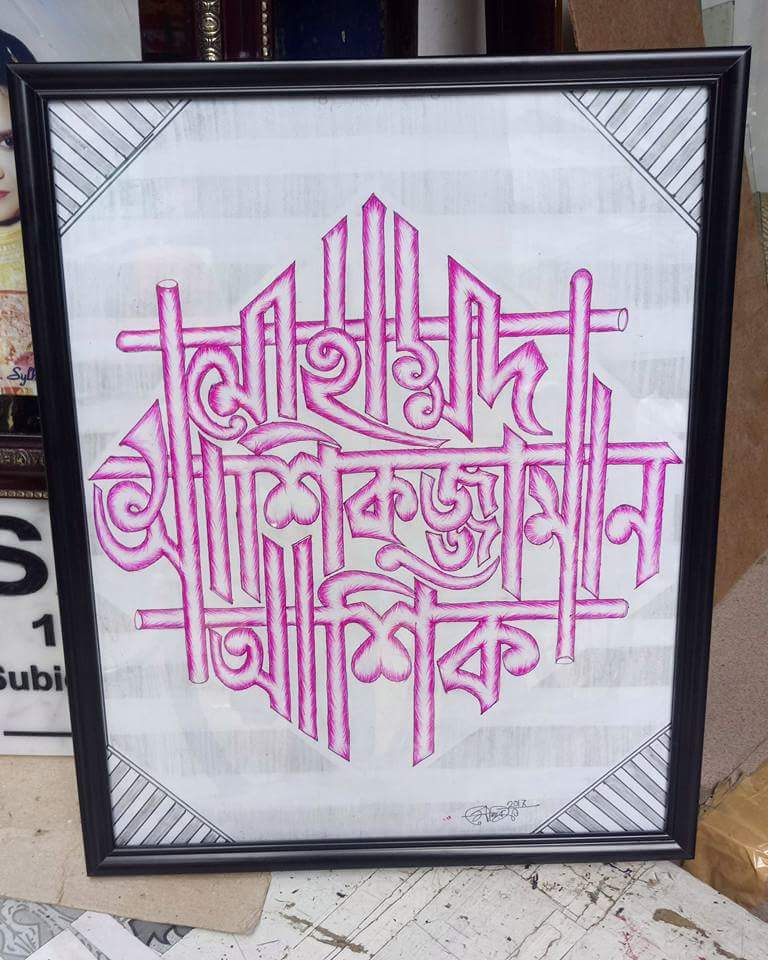 মোহাম্মদ
আশিকুজ্জামান
আশিক
2017
Syl
S
1
Subi